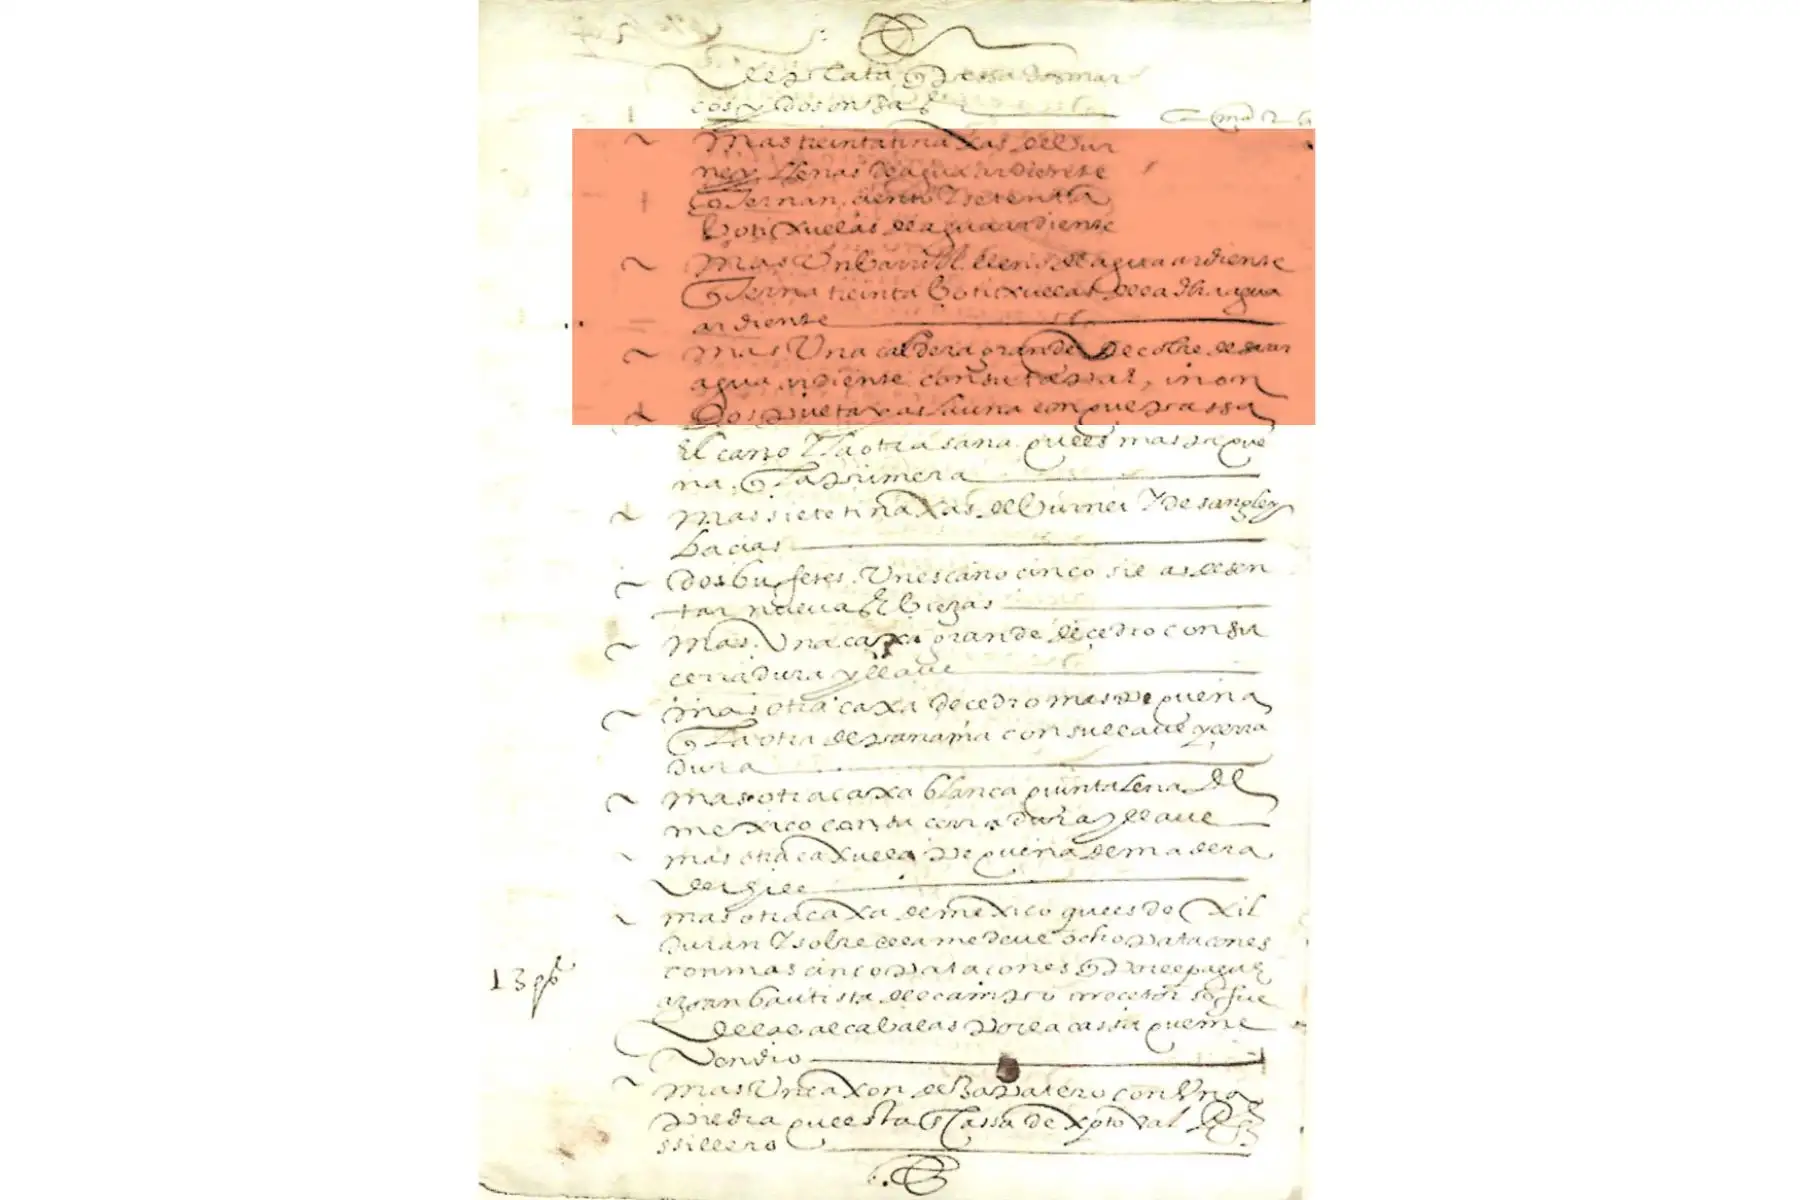 de plata q pessa dos mar
cos y dos onsas
mas treinta tinaxas de bur
ney llenas de agua ardiente
q seran ciento y setenta
botixuelas de agua ardiente
mas Un barril lleno de agua ardiente
q sera treinta botixuelas de la dha agua
ardiente
mas Una caldera grande de cobre de sacar
agua ardiente con su tapial, i mon
Dos la una
El cano y la otra sana que es mas peque
na q la primera
mas siete tinaxas de burnei y de sangley
bacias
Dos bufetes. Un escano cinco sillas de sen
tar nuevas & biejas
mas Una caxa grande de cedro con su
cerradura y llave
mas otra caxa de cedro mas pequena
q la otra de panama con su llave y cerra
dura
mas otra caxa blanca quintalena de
mexico con su cerradura y llave
mas otra caxuela pequena de madera
de
mas otra caxa de mexico que es de Xil
duran y sobre ella me deve ocho patacones
con mas cinco patacones q por el pague
a Juan bautista del campo que fue
de las alcabalas por la cassa que me
Vendio
13 ps
mas Un caxon de Zapatero con Una
piedra que esta en Cassa de xptoval
ssillero